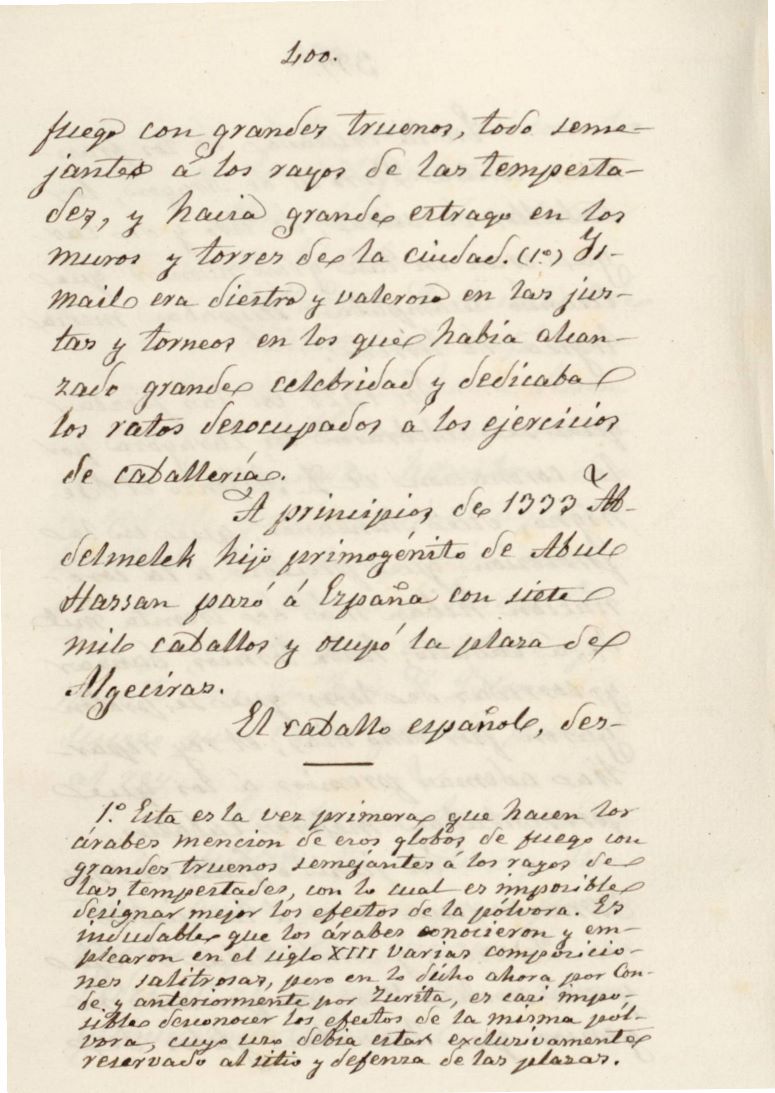 400.
fuego con grandes truenos, todo seme-
jantes á los rayos de las tempesta-
des, y hacia grande estrago en los
muros y torres de la ciudad. (1.º) Is-
mail era diestro y valeroso en las jus-
tas y torneos en los que habia alcan-
zado grande celebridad y dedicaba
los ratos desocupados á los ejercicios
de caballería.
A principios de 1333 Ab-
delmelek hijo primogénito de Abul
Hassan pasó á España con siete
mil caballos y ocupó la plaza de
Algeciras.
El caballo español, des-
1.º Esta es la vez primera que hacen los
árabes mencion de esos globos de fuego con
grandes truenos semejantes á los rayos de
las tempestades, con lo cual es imposible
designar mejor los efectos de la pólvora. Es
indudable que los árabes conocieron y em-
plearon en el siglo XIII varias composicio-
nes salitrosas, pero en lo dicho ahora por Con-
de y anteriormente por Zurita, es casi impo-
sible desconocer los efectos de la misma pól-
vora, cuyo uso debia estar exclusivamente
reservado al sitio y defenza de las plazas.